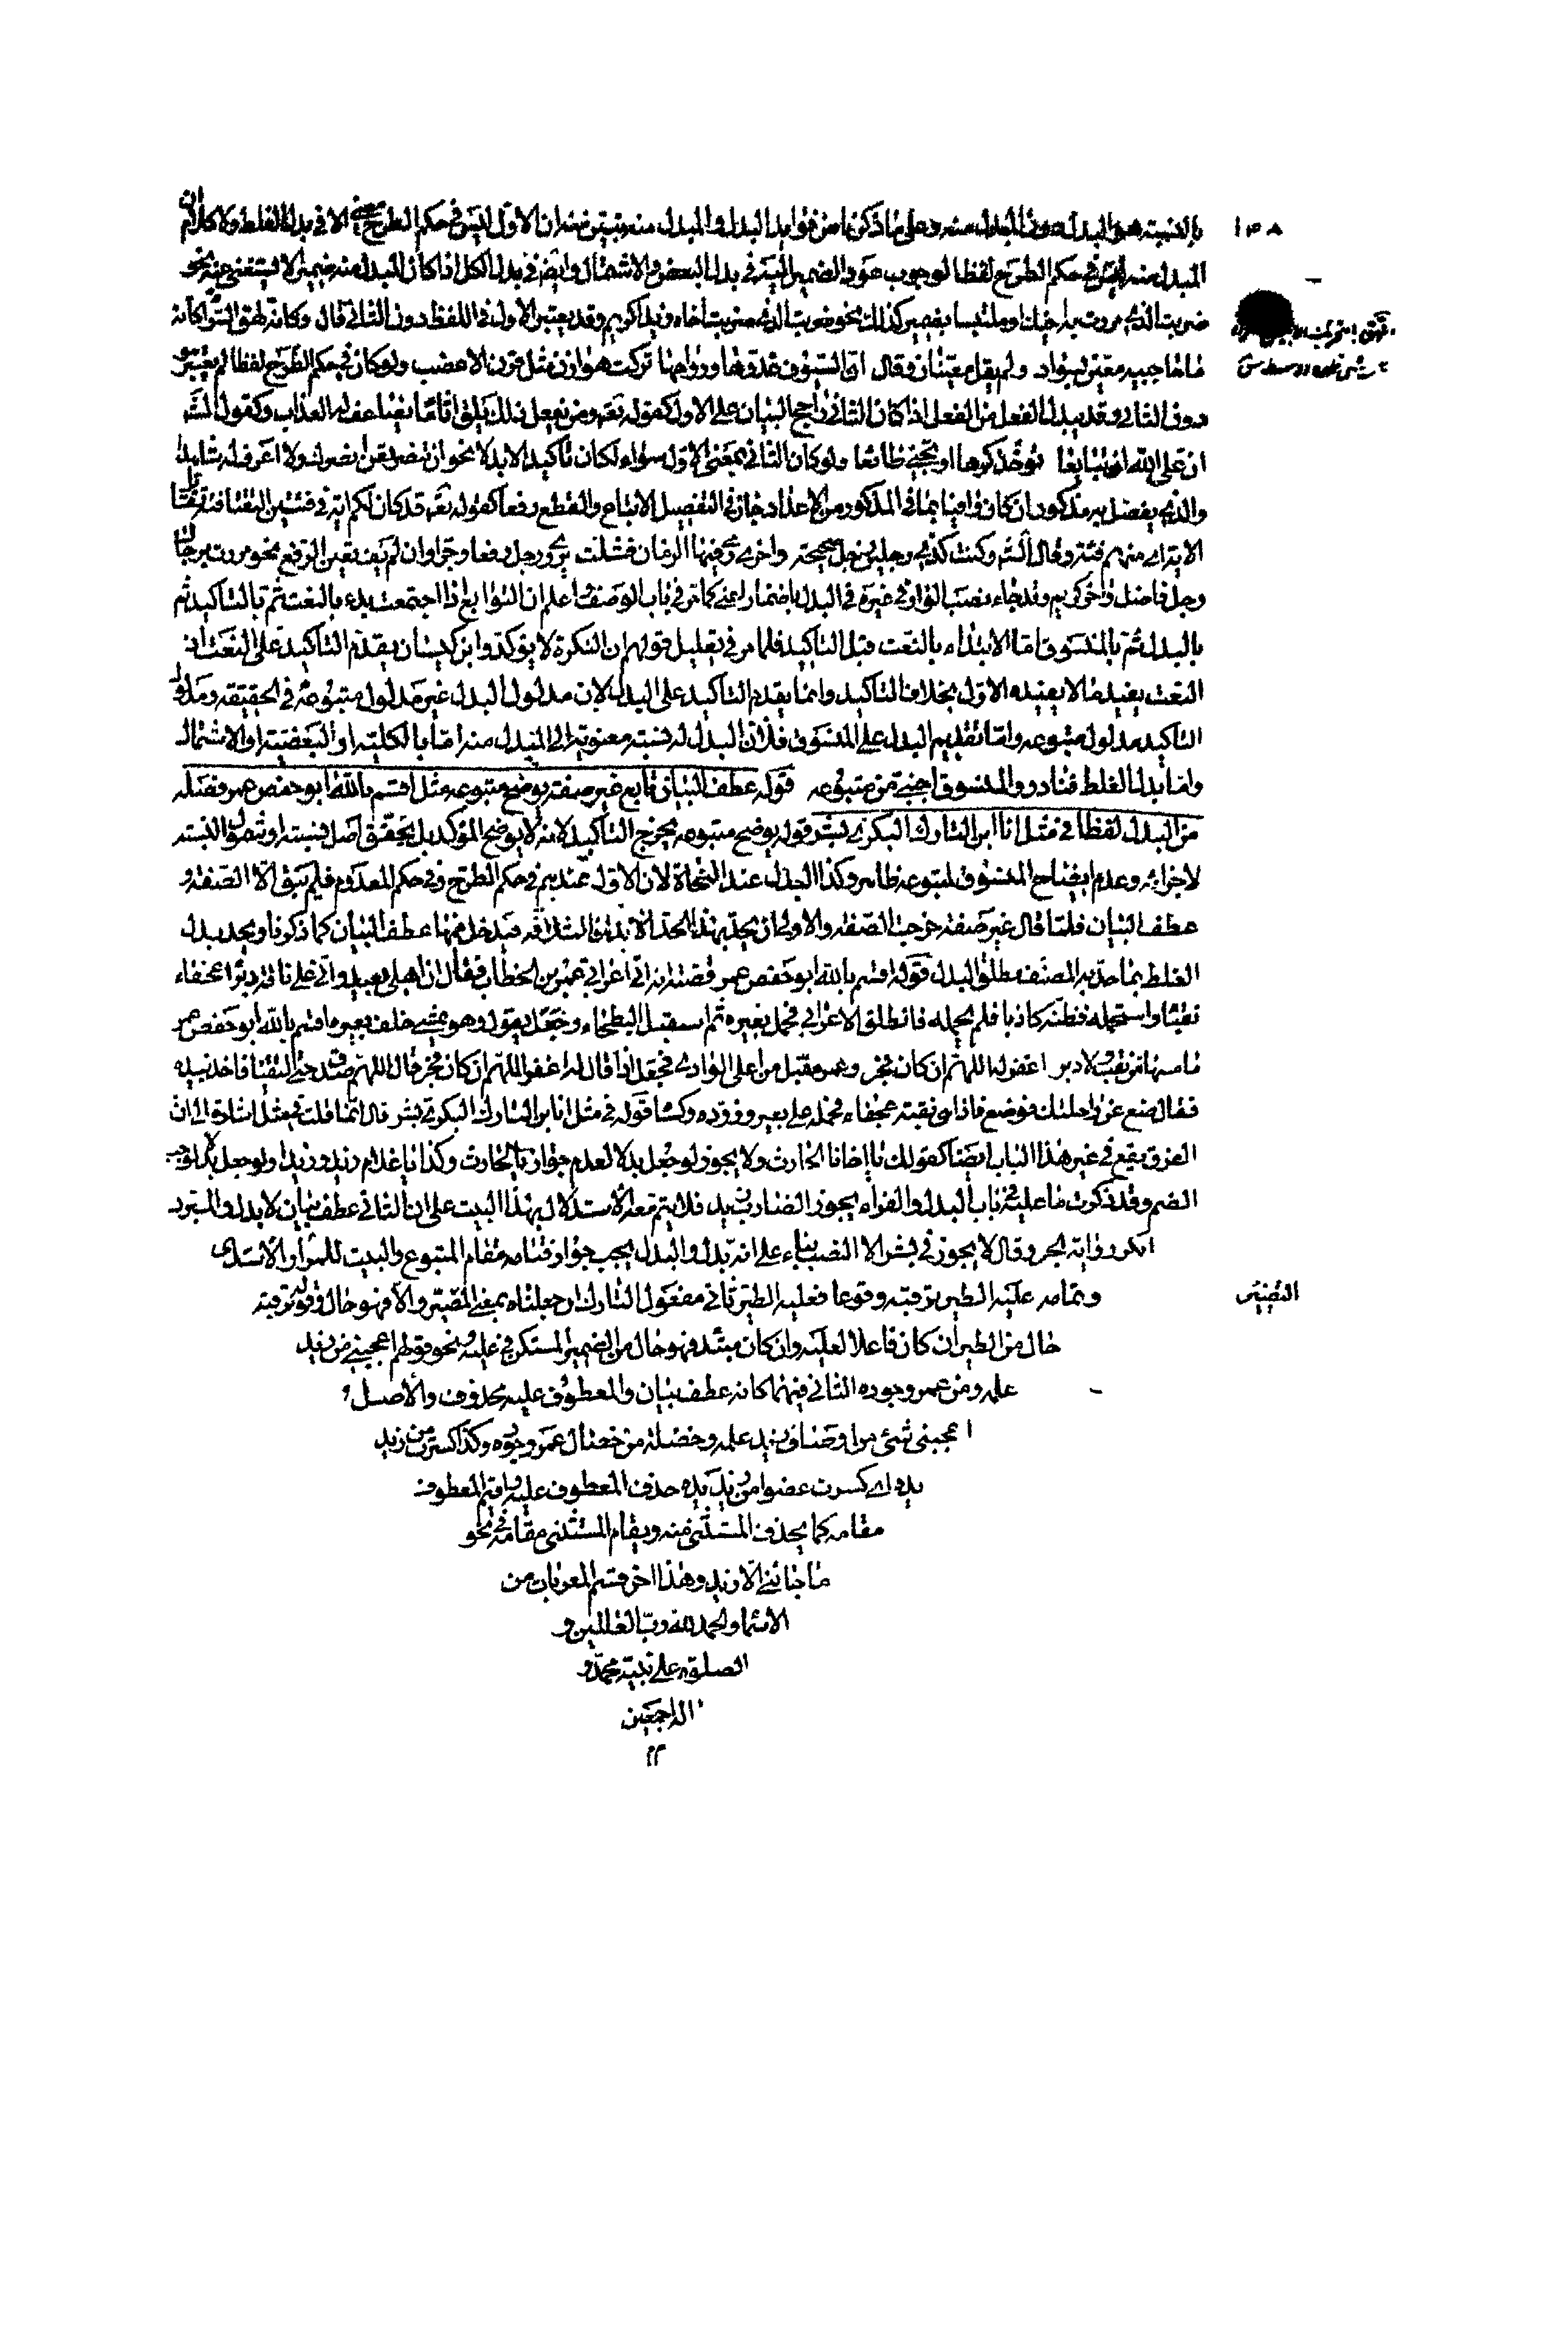 بالنسبة هو البدل دون المبدل منه وعلى ما ذكرنا من فوايد البدل والمبدل منه يتبين منه ان الاول ليس في حكم الطرح معنى الا في بدل الغلط ولا كلام ان
المبدل منه ليس في حكم الطرح لفظا لوجوب عود الضمير اليه في بدل البعض والاشتمال وايضا في بدل الكل اذا كان المبدل منه ضميرا لا يستغنى عنه نحو
ضربت الذي مررت به اخيك او ملتبسا بضمير كذلك نحو ضربت الذي ضربت اخاه زيدا كريم وقد يعتبر الاول في اللفظ دون الثاني قال وكانه لهق السراة كانه
ما حاجبيه معين بسواد ولم يقل معينان وقال ان السيوف غدوها ورواحها تركت هوازن مثل قرن الاعضب ولو كان في حكم الطرح لفظا لم يعتبر هو
دون الثاني وقد يبدل الفعل من الفعل اذا كان الثاني راجح البيان على الاول كقوله تعه ومن يفعل ذلك يلق اثاما يضاعف له العذاب وكقول الشـ
ان على الله ان تبايعا توخذ كرها او تجئ طائعا ولو كان الثاني بمعنى الاول سواء لكان تاكيدا لا بدلا نحو ان تنصر تعن انصرك ولا اعرف له شاهدا
والذي يفصل به مذكور ان كان وافيا بما في المذكور من الاعداد جاز في التفصيل الاتباع والقطع رفعا كقوله تعه قد كان لكم اية في فئتين التقتا فئة تقاتل
الاية اي منهم فئة وقال الشـ وكنت كذي رجلين رجل صحيحة واخرى رمى فيها الزمان فشلت يروى رجل رفعا وجرا وان لم يف تعين الرفع نحو مررت برجال
رجل فاضل واخر كريم وقد جاء نصب الوافي وغيره في البدل باضمار اعني كما مر في باب الوصف واعلم ان التوابع اذا اجتمعت بدء بالنعت ثم بالتاكيد ثم
بالبدل ثم بالمنسوق اما الابتداء بالنعت قبل التاكيد فلما مر في تعليل قولهم ان النكرة لا يوكد وابن كيسان يقدم التاكيد على النعت اذ
النعت يفيد ما لا يفيده الاول بخلاف التاكيد وانما يقدم التاكيد على البدل لان مدلول البدل غير مدلول متبوعه في الحقيقة ومدلول
التاكيد مدلول متبوعه واما تقديم البدل على المنسوق فلان البدل له نسبة معنوية الى المبدل منه اما بالكلية او البعضية او الاشتمال
واما بدل الغلط فنادر والمنسوق اجنبي من متبوعه قوله عطف البيان تابع غير صفة يوضح متبوعه مثل اقسم بالله ابو حفص عمر وفصله
من البدل لفظا في مثل انا ابن التارك البكري بشر قوله يوضح متبوعه يخرج التاكيد لانه لا يوضح المؤكد بل يحقق اصل نسبته او شمول النسبة
لاجزائه وعدم ايضاح المنسوق لمتبوعه ظاهر وكذا البدل عند النحاة لان الاول عندهم في حكم الطرح وفي حكم المعدوم فلم يبق الا الصفة و
عطف البيان فلما قال غير صفة خرجت الصفة والاولى ان يحد بهذا الحد
الغلط بما حد به المصنف مطلق البدل قوله اقسم بالله ابو حفص عمر قصته انه اتى اعرابي عمر بن الخطاب فقال ان اهلي بعيد واني على ناقة دبراء عجفاء
نقباء واستحمله فظنه كاذبا فلم يحمله فانطلق الاعرابي فحمل بعيره ثم استقبل البطحاء وجعل يقول وهو يمشي خلف بعيره اقسم بالله ابو حفص عمر
ما مسها من نقب ولا دبر اغفر له اللهم ان كان فجر وعمر مقبل من اعلى الوادي فجعل اذا قال اغفر له اللهم ان كان فجر قال اللهم صدق حتى التقيا فاخذ بيده
فقال ضع عن راحلتك فوضع فاذا هي نقبة عجفاء فحمله على بعير وزوده وكساه قوله في مثل انا ابن التارك البكري بشر قال انما قلت في مثل اشارة الى ان
الفرق يقع في غير هذا الباب ايضا كقولك يا اخانا الحارث ولا يجوز لو جعل بدلا لعدم جواز يا الحارث وكذا يا غلام زيد وزيدا ولو جعل بدلا لوجب
الضم وقد ذكرت ما عليه في باب البدل والفراء يجوز الضارب زيد فلا يتم معه الاستدلال بهذا البيت على ان الثاني عطف بيان لا بدل والمبرد
انكر رواية الجر وقال لا يجوز في بشر الا النصب بناء على انه بدل والبدل يجب جواز قيامه مقام المتبوع والبيت للمرار الاسدي
وتمامه عليه الطير ترقبه وقوعا فعليه الطير ثاني مفعولي التارك ان جعلناه بمعنى المصير والا فهو حال وقوله ترقبه
حال من الطير ان كان فاعلا لعليه وان كان مبتدا فهو حال من الضمير المستكن في عليه ونحو قولهم اعجبني من زيد
علمه ومن عمرو جوده الثاني فيهما كانه عطف بيان والمعطوف عليه محذوف والاصل
اعجبني شئ من اوصاف زيد علمه وخصلة من خصال عمرو جوده وكذا كسرت من زيد
يده اي كسرت عضوا من زيد يده حذف المعطوف عليه واقيم المعطوف
مقامه كما يحذف المستثنى منه ويقام المستثنى مقامه في نحو
ما جائني الا زيد وهذا اخر قسم المعربات من
الاسماء والحمد لله رب العالمين و
الصلوة على نبيه محمد و
اله اجمعين
١٢
التصيير